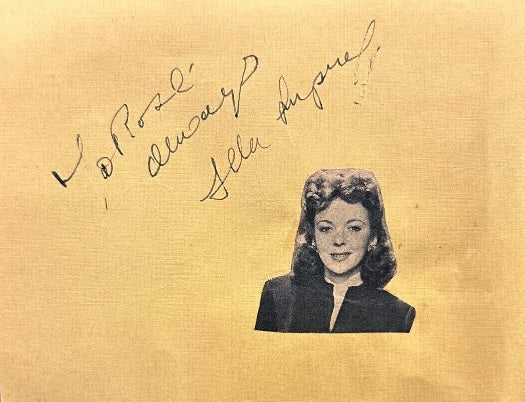 To Rose!
always
Ida Lupino